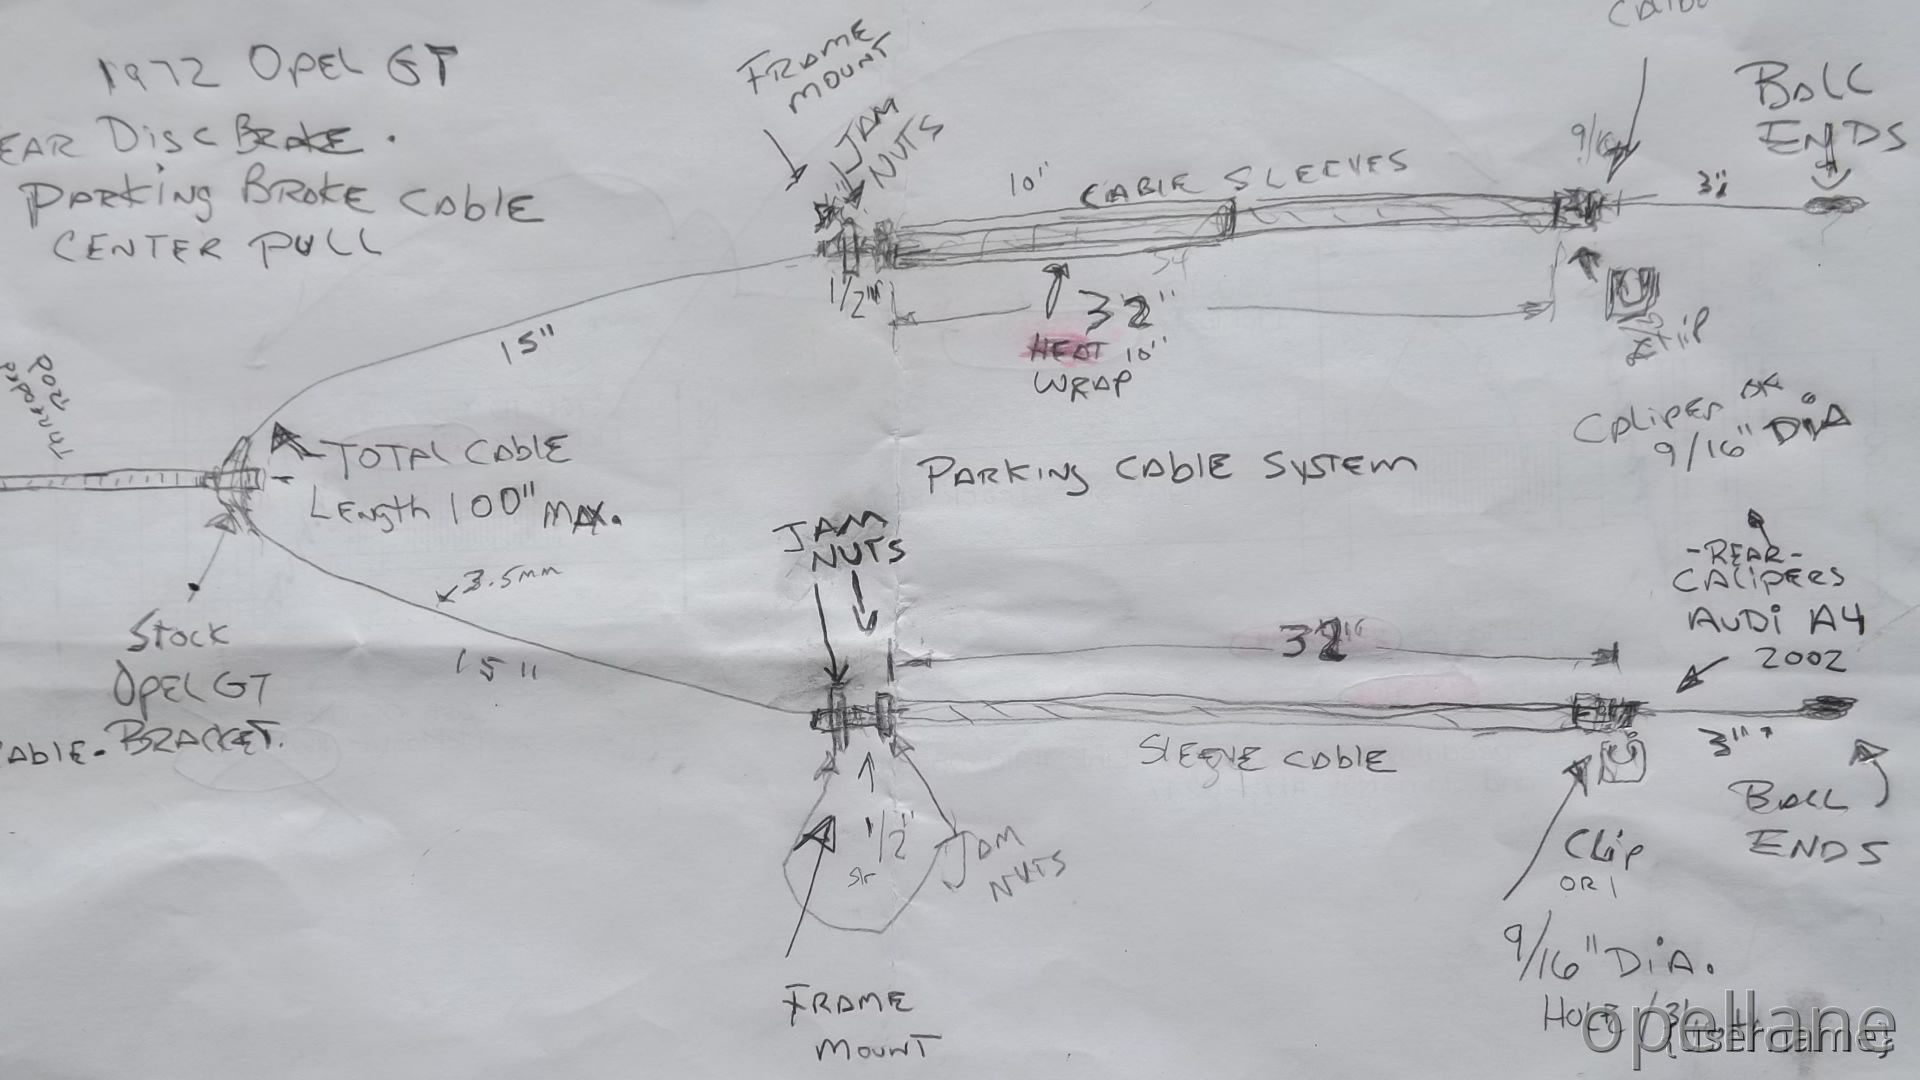 1972 OPEL GT
EAR DISC BRAKE.
PARKING BROKE CABLE
CENTER PULL
FRAME
MOUNT
JAM
NUTS
10"
CABLE SLEEVES
9/16
3"
BALL
ENDS
1/2"
32"
HEAT 10"
WRAP
15"
THREADED
ROD
TOTAL CABLE
LENGTH 100" MAX.
PARKING CABLE SYSTEM
CALIPER
9/16" DIA
3.5mm
15"
STOCK
OPEL GT
BRACKET.
ABLE.
JAM
NUTS
32"
-REAR-
CALIPERS
AUDI A4
2002
SLEEVE CABLE
3"
BALL
ENDS
1/2"
JAM
NUTS
CLIP
OR
9/16" DIA.
FRAME
MOUNT
opellane
{username}